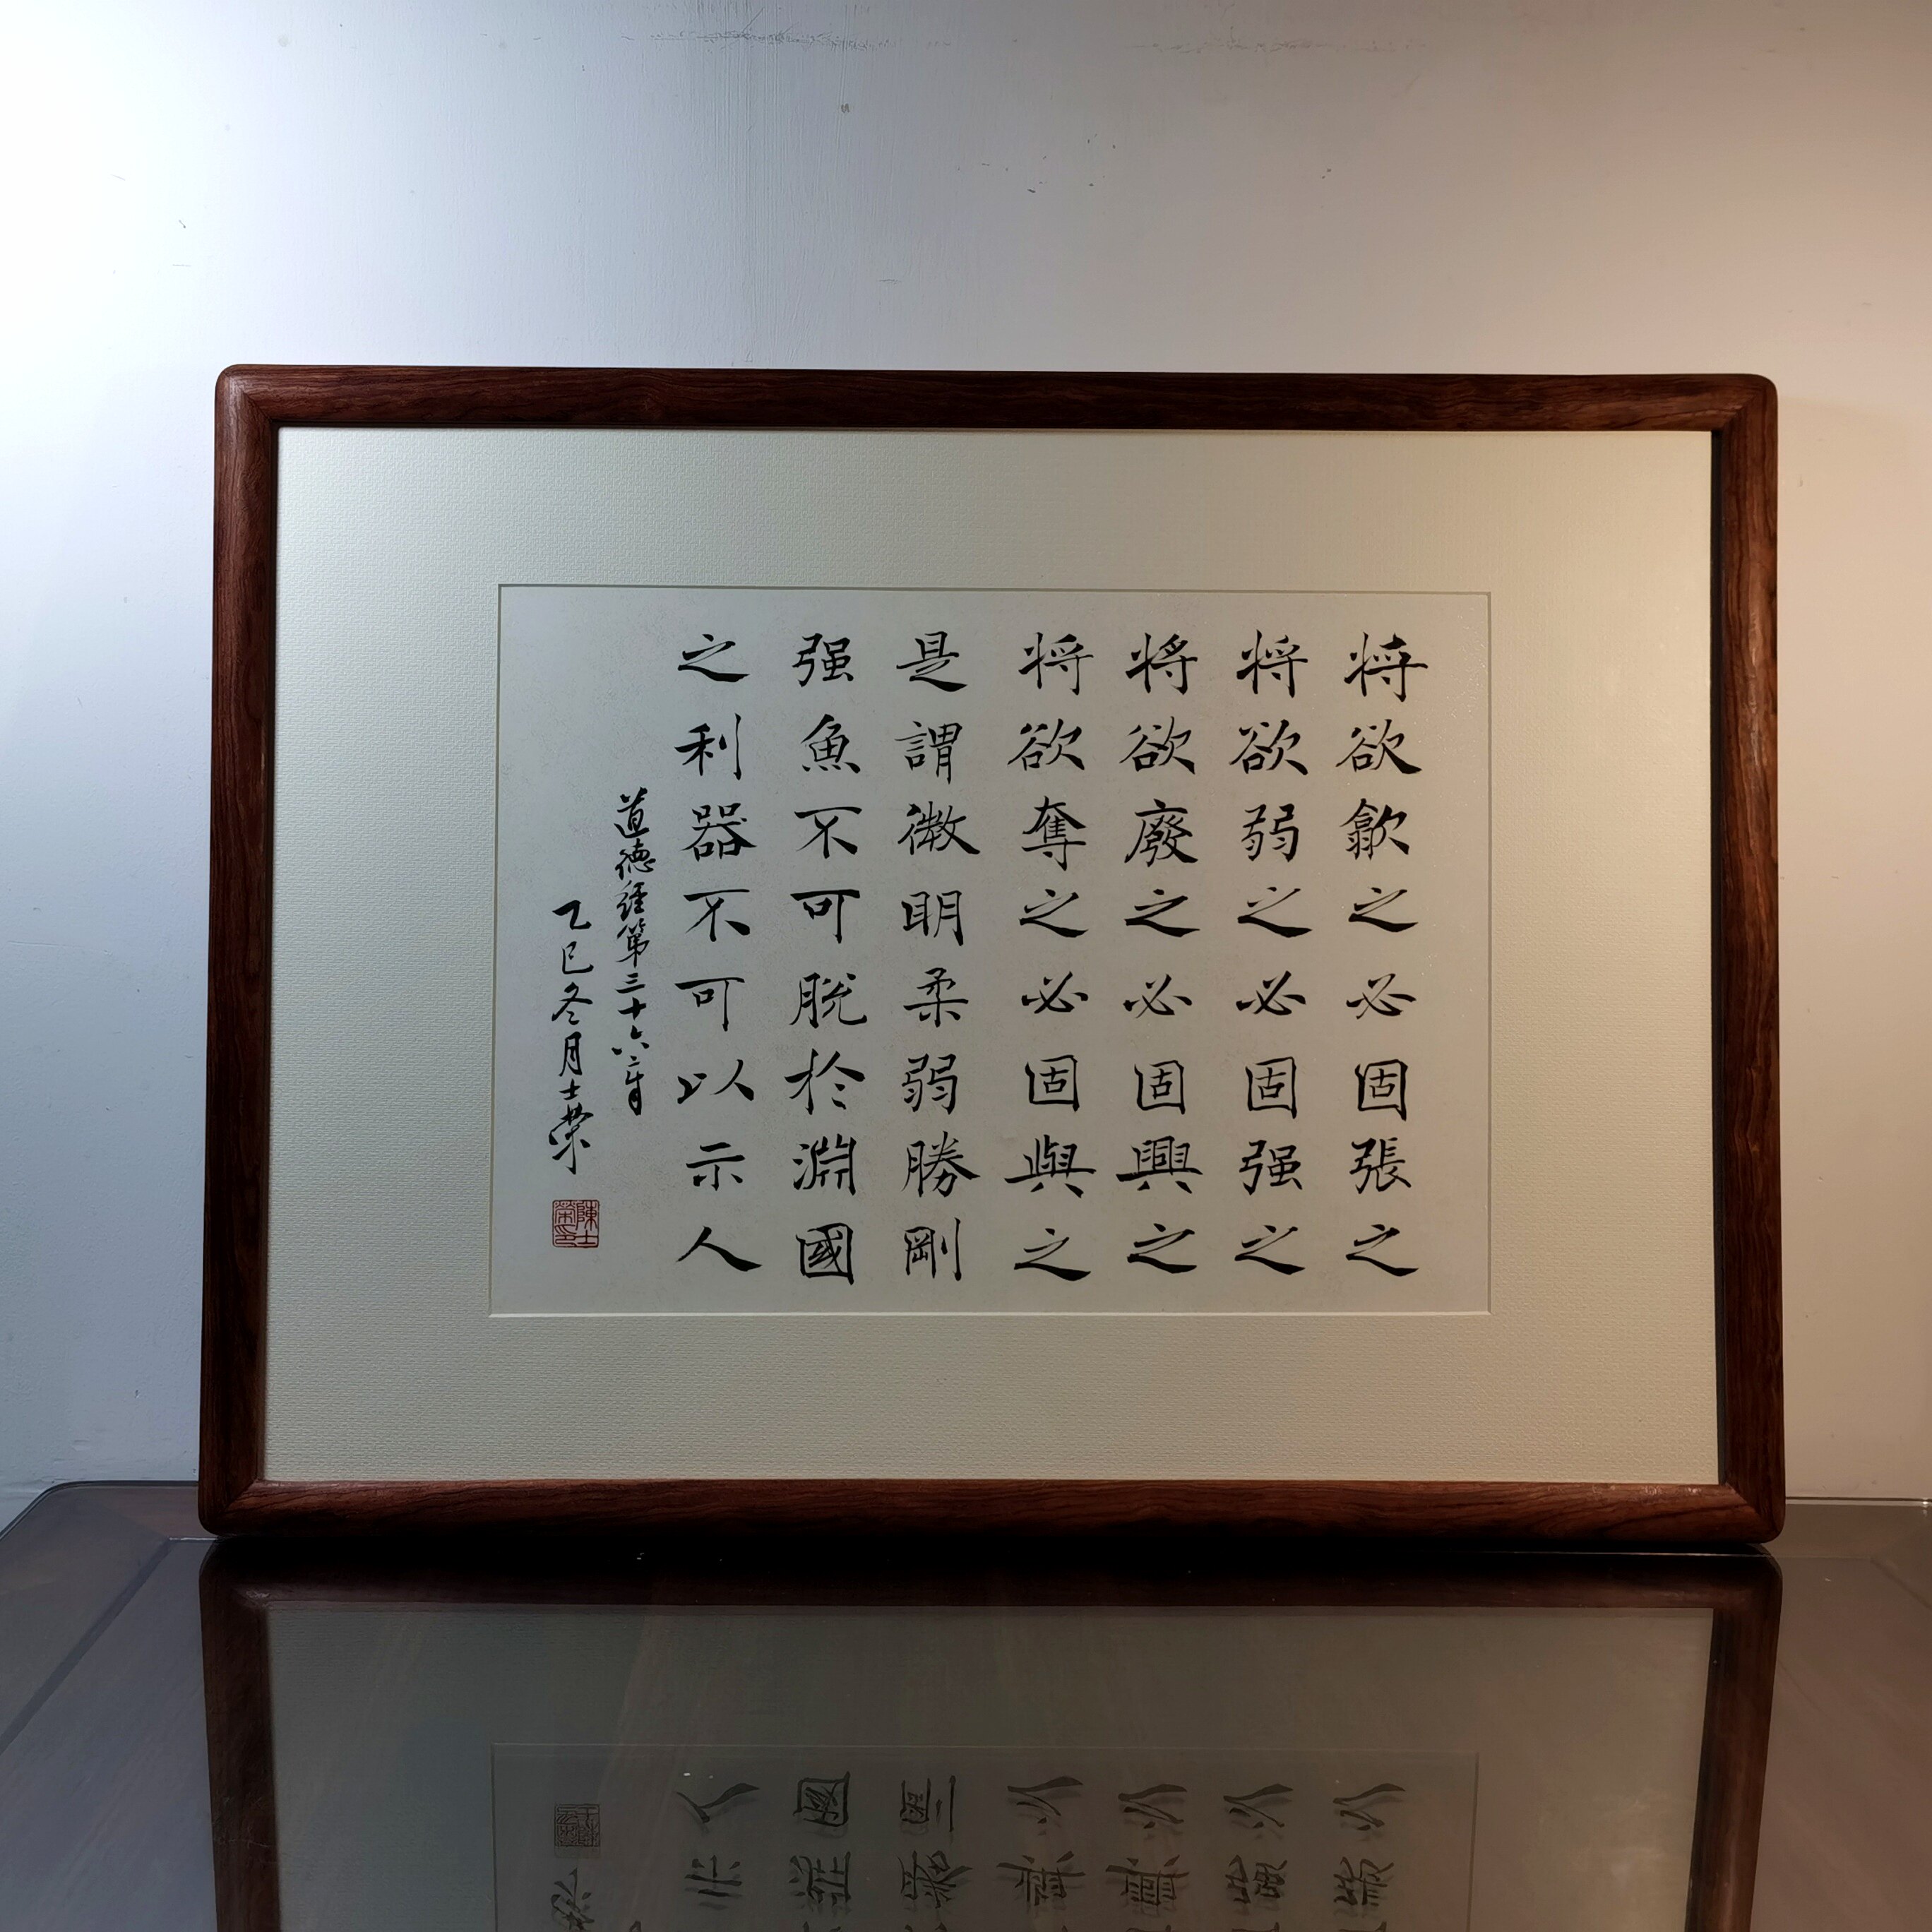 將欲歙之必固張之
將欲弱之必固强之
將欲廢之必固興之
將欲奪之必固與之
是謂微明柔弱勝剛
强魚不可脫於淵國
之利器不可以示人
道德經第三十六章
乙巳冬月士榮
陳士榮印